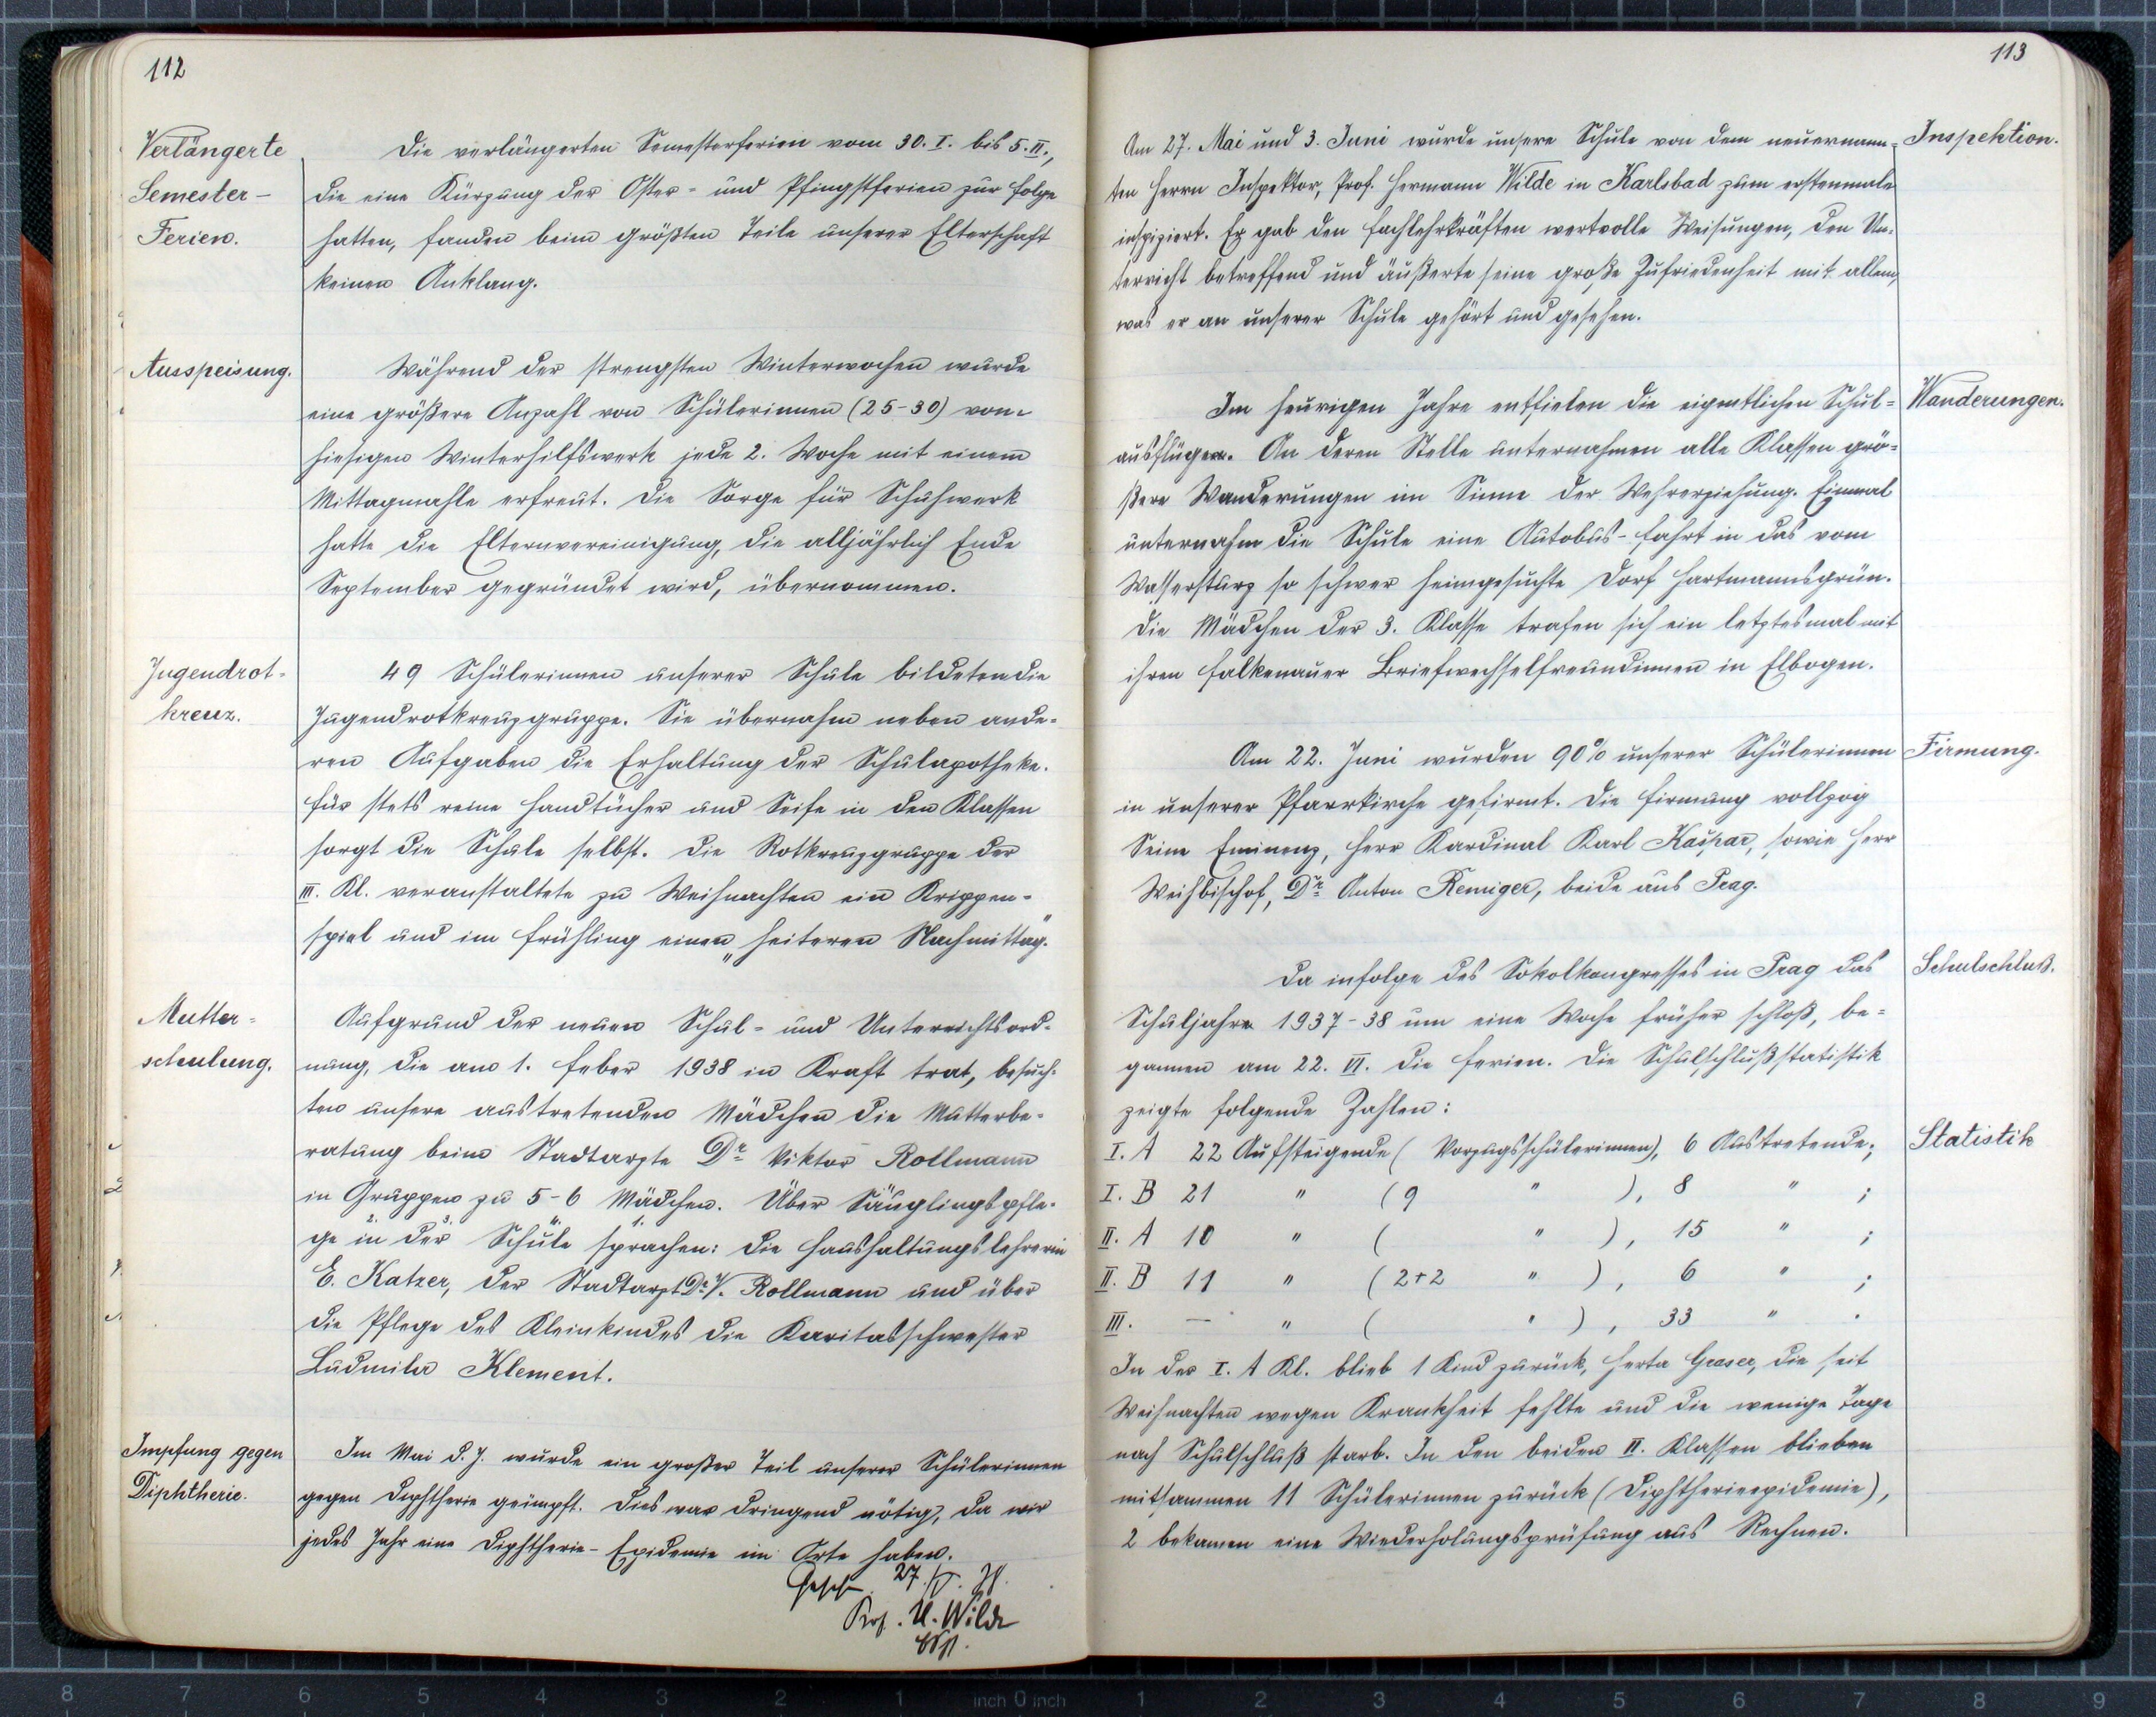 112
Verlängerte
Semester-
Ferien.
Die verlängerten Semesterferien vom 30. I. bis 5. II.,
die eine Kürzung der Oster- und Pfingstferien zur Folge
hatten, fanden beim größten Teile unserer Elterschaft
keinen Anklang.
Ausspeisung.
Während der strengsten Winterwochen wurde
eine größere Anzahl von Schülerinnen (25-30) vom
hiesigen Winterhilfswerk jede 2. Woche mit einem
Mittagmahle erfreut. Die Sorge für Schuhwerk
hatte die Elternvereinigung, die alljährlich Ende
September gegründet wird, übernommen.
Jugendrot-
kreuz.
49 Schülerinnen unserer Schule bildeten die
Jugendrotkreuzgruppe. Sie übernahm neben ande-
ren Aufgaben die Erhaltung der Schulapotheke.
Für stets reine Handtücher und Seife in den Klassen
sorgt die Schule selbst. Die Rotkreuzgruppe der
III. Kl. veranstaltete zu Weihnachten ein Krippen-
spiel und im Frühling einen „heiteren Nachmittag".
Mutter-
schulung.
Aufgrund der neuen Schul- und Unterrichtsord-
nung, die am 1. Feber 1938 in Kraft trat, besuch-
ten unsere austretenden Mädchen die Mutterbe-
ratung beim Stadtarzte Dr. Viktor Rollmann
in Gruppen zu 5-6 Mädchen. Über Säuglingspfle-
ge in der Schule sprachen: die Haushaltungslehrerin
E. Katzer, der Stadtarzt Dr. V. Rollmann und über
die Pflege des Kleinkindes die Karitasschwester
Ludmila Klement.
Impfung gegen
Diphtherie.
Im Mai d. J. wurde ein großer Teil unserer Schülerinnen
gegen Diphtherie geimpft. Dies war dringend nötig, da wir
jedes Jahr eine Diphtherie-Epidemie im Orte haben.
27.
Prof. H. Wilde
113
Am 27. Mai und 3. Juni wurde unsere Schule von dem neuernann-
ten Herrn Inspektor, Prof. Hermann Wilde in Karlsbad zum erstenmale
inspiziert. Er gab den Fachlehrkräften wertvolle Weisungen, den Un-
terricht betreffend und äußerte seine große Zufriedenheit mit allem,
was er an unserer Schule gehört und gesehen.
Inspektion.
Im heurigen Jahre entfielen die eigentlichen Schul-
ausflüge. An deren Stelle unternahmen alle Klassen grö-
ßere Wanderungen im Sinne der Wehrerziehung. Einmal
unternahm die Schule eine Autobus-Fahrt in das vom
Wassersturz so schwer heimgesuchte Dorf Hartmannsgrün.
Die Mädchen der 3. Klasse trafen sich ein letztesmal mit
ihren Falkenauer Briefwechselfreundinnen in Elbogen.
Wanderungen.
Am 22. Juni wurden 90% unserer Schülerinnen
in unserer Pfarrkirche gefirmt. Die Firmung vollzog
Seine Eminenz, Herr Kardinal Karl Kašpar, sowie Herr
Weihbischof, Dr. Anton Remiger, beide aus Prag.
Firmung.
Da infolge des Sokolkongresses in Prag das
Schuljahr 1937-38 um eine Woche früher schloß, be-
gannen am 22. VI. die Ferien. Die Schulschlußstatistik
zeigte folgende Zahlen:
Schulschluß.
Statistik
I. A 22 Aufsteigende ( Vorzugsschülerinnen), 6 Austretende;
I. B 21 " (9 " ), 8 " ;
II. A 10 " ( " ), 15 " ;
II. B 11 " (2+2 " ), 6 " ;
III. — " ( " ), 33 " .
In der I. A Kl. blieb 1 Kind zurück, Herta Graser, die seit
Weihnachten wegen Krankheit fehlte und die wenige Tage
nach Schulschluß starb. In den beiden II. Klassen blieben
mitsammen 11 Schülerinnen zurück (Diphtherieepidemie),
2 bekamen eine Wiederholungsprüfung aus Rechnen.
8 7 6 5 4 3 2 1 inch 0 inch 1 2 3 4 5 6 7 8 9